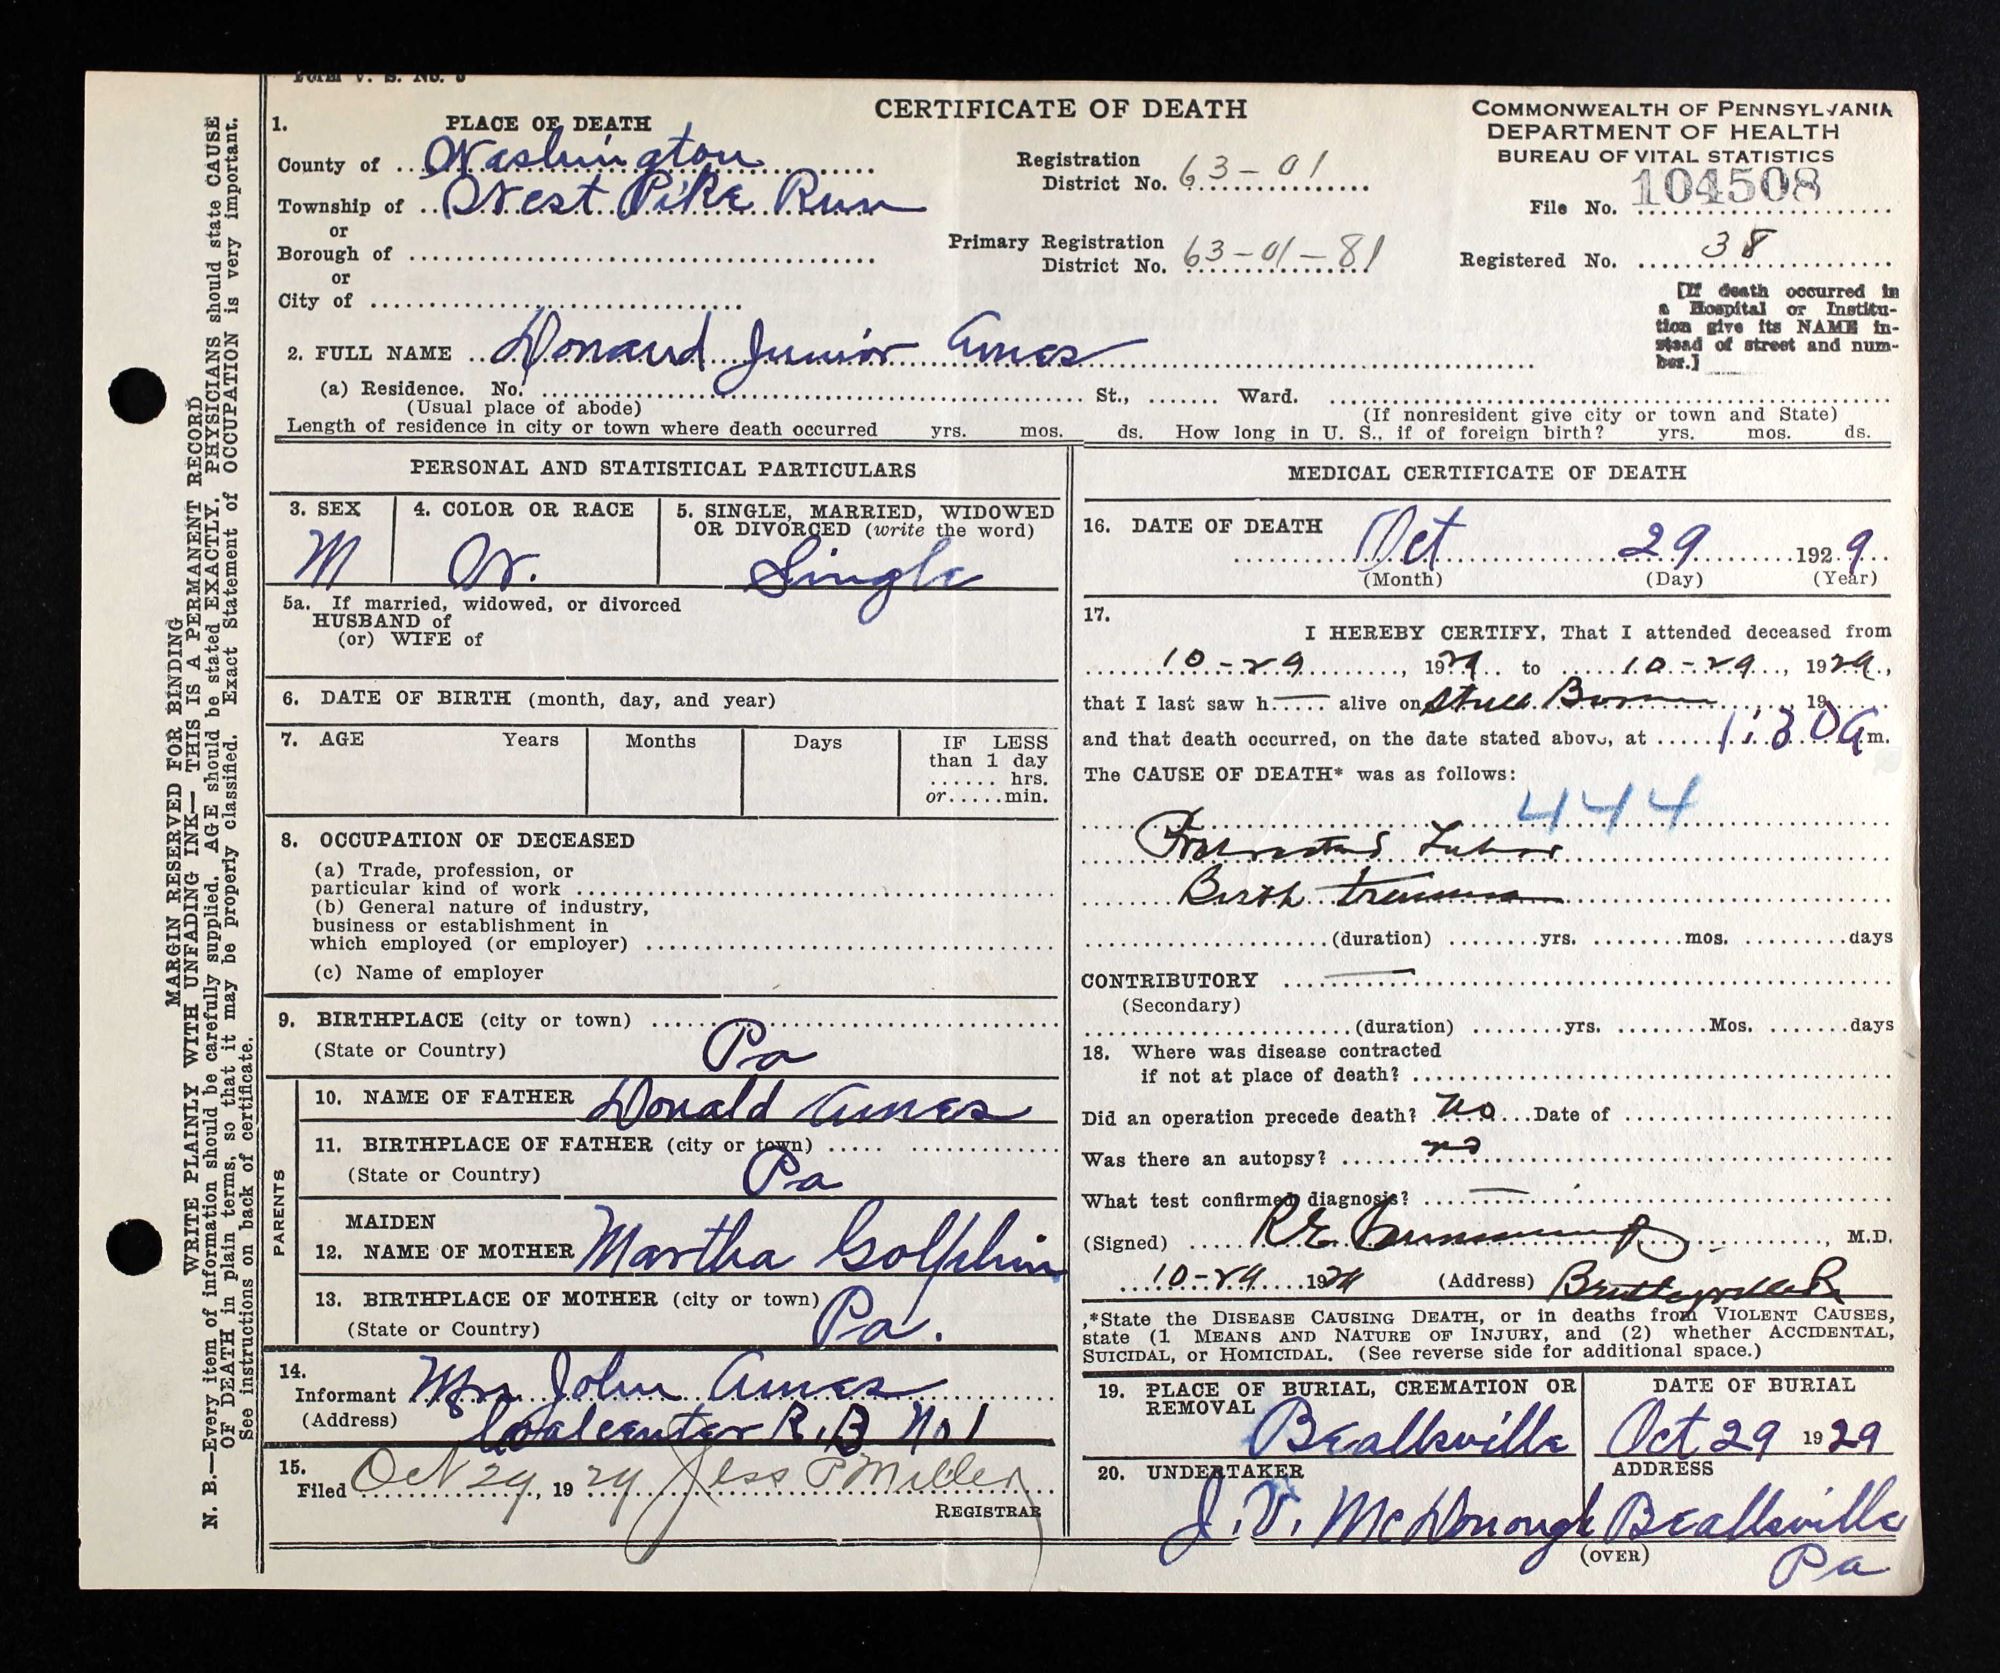 Form V. S. No. 5
CERTIFICATE OF DEATH
COMMONWEALTH OF PENNSYLVANIA
DEPARTMENT OF HEALTH
BUREAU OF VITAL STATISTICS
1. PLACE OF DEATH
County of Washington
Township of West Pike Run
or
Borough of
or
City of
Registration District No. 63-01
Primary Registration District No. 63-01-81
File No. 104508
Registered No. 38
[If death occurred in
a Hospital or Institu-
tion give its NAME in-
stead of street and num-
ber.]
2. FULL NAME Donaud Junior Ames
(a) Residence. No. St., Ward.
(Usual place of abode) (If nonresident give city or town and State)
Length of residence in city or town where death occurred yrs. mos. ds. How long in U. S., if of foreign birth? yrs. mos. ds.
PERSONAL AND STATISTICAL PARTICULARS
3. SEX M
4. COLOR OR RACE W.
5. SINGLE, MARRIED, WIDOWED
OR DIVORCED (write the word)
Single
5a. If married, widowed, or divorced
HUSBAND of
(or) WIFE of
6. DATE OF BIRTH (month, day, and year)
7. AGE Years Months Days IF LESS
than 1 day
hrs.
or min.
8. OCCUPATION OF DECEASED
(a) Trade, profession, or
particular kind of work
(b) General nature of industry,
business or establishment in
which employed (or employer)
(c) Name of employer
9. BIRTHPLACE (city or town)
(State or Country) Pa
PARENTS
10. NAME OF FATHER Donald Ames
11. BIRTHPLACE OF FATHER (city or town)
(State or Country) Pa
MAIDEN
12. NAME OF MOTHER Martha Golphin
13. BIRTHPLACE OF MOTHER (city or town)
(State or Country) Pa.
14.
Informant Mrs John Ames
(Address) Coalcenter R.D No 1
15.
Filed Oct 29, 1929 Jess P Miller
REGISTRAR
MEDICAL CERTIFICATE OF DEATH
16. DATE OF DEATH Oct 29 1929
(Month) (Day) (Year)
17.
I HEREBY CERTIFY, That I attended deceased from
10-29, 1929 to 10-29, 1929,
that I last saw h alive on Still Born, 19
and that death occurred, on the date stated above, at 1:30 A m.
The CAUSE OF DEATH* was as follows:
444
Labor
Birth trauma
(duration) yrs. mos. days
CONTRIBUTORY
(Secondary)
(duration) yrs. Mos. days
18. Where was disease contracted
if not at place of death?
Did an operation precede death? No Date of
Was there an autopsy? no
What test confirmed diagnosis?
(Signed) R E , M.D.
10-29 1929 (Address)
*State the DISEASE CAUSING DEATH, or in deaths from VIOLENT CAUSES,
state (1 MEANS AND NATURE OF INJURY, and (2) whether ACCIDENTAL,
SUICIDAL, or HOMICIDAL. (See reverse side for additional space.)
19. PLACE OF BURIAL, CREMATION OR
REMOVAL
Beallsville
DATE OF BURIAL
Oct 29 1929
20. UNDERTAKER
J. V. McDonough
ADDRESS
Beallsville
Pa
(OVER)
MARGIN RESERVED FOR BINDING
WRITE PLAINLY WITH UNFADING INK— THIS IS A PERMANENT RECORD
N. B.—Every item of information should be carefully supplied. AGE should be stated EXACTLY. PHYSICIANS should state CAUSE
OF DEATH in plain terms, so that it may be properly classified. Exact Statement of OCCUPATION is very important.
See instructions on back of certificate.